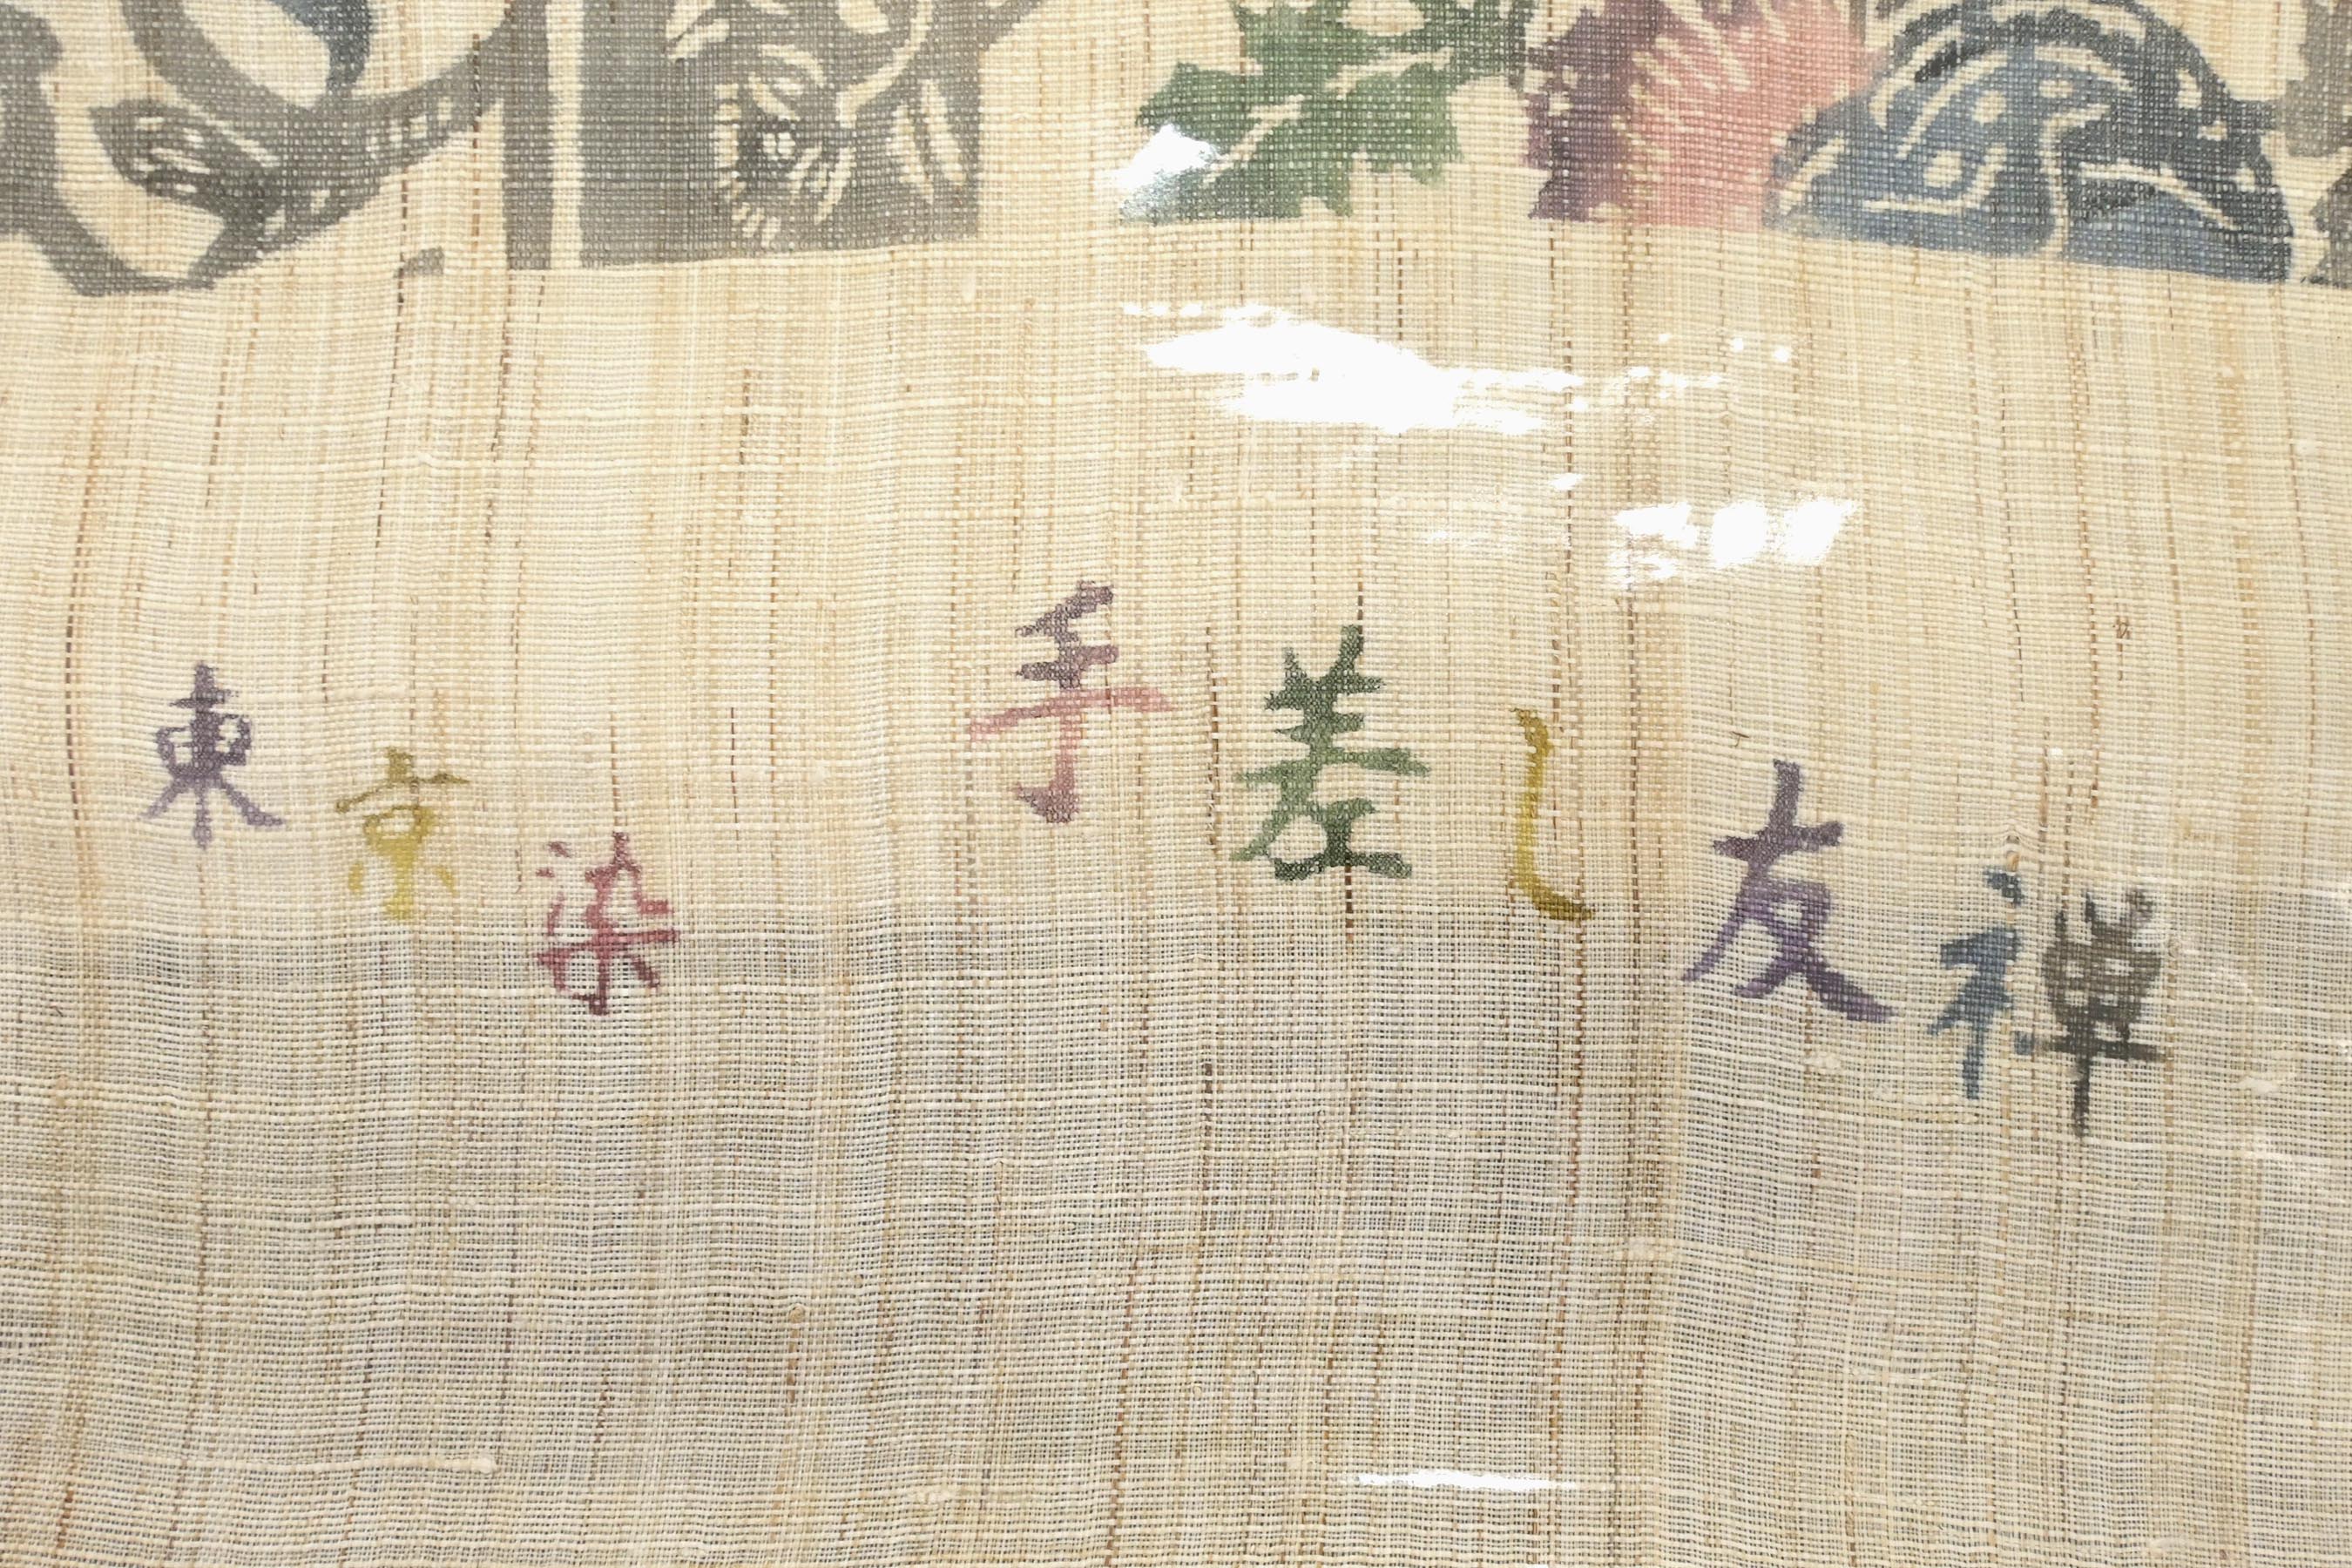 東京染 手差し友禅